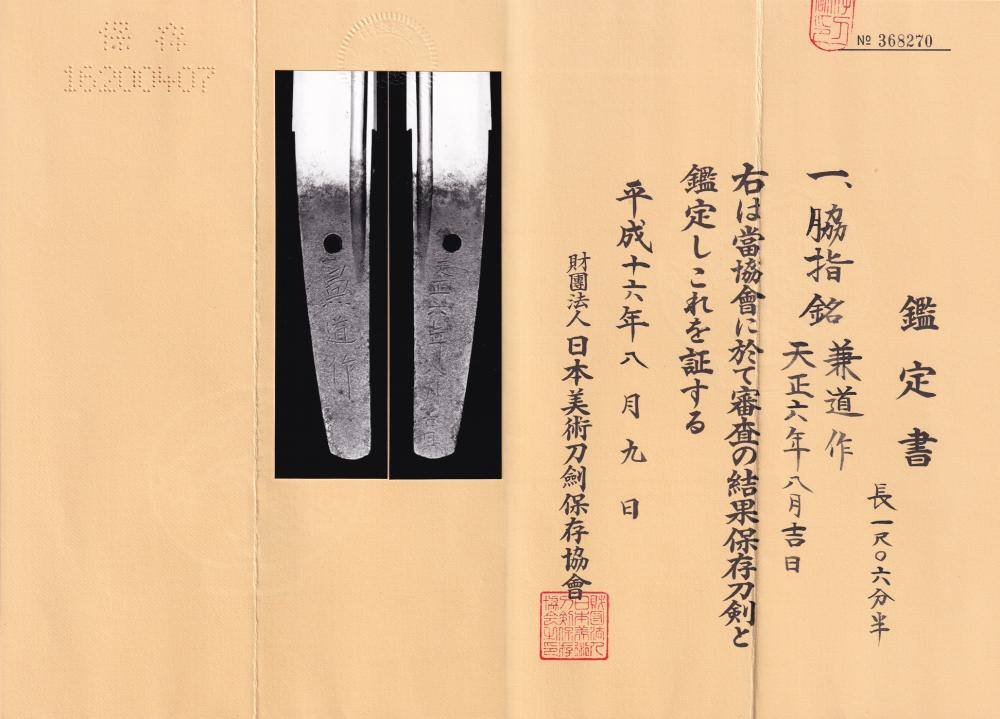 № 368270
鑑定書
長一尺〇六分半
一、脇指 銘 兼道作
天正六年八月吉日
右は當協會に於て審査の結果保存刀剣と
鑑定しこれを証する
平成十六年八月九日
財團法人日本美術刀劍保存協會
財團法人
日本美術
刀劍保存
協會之印
保存
16200407
天正六年八月吉日
兼道作